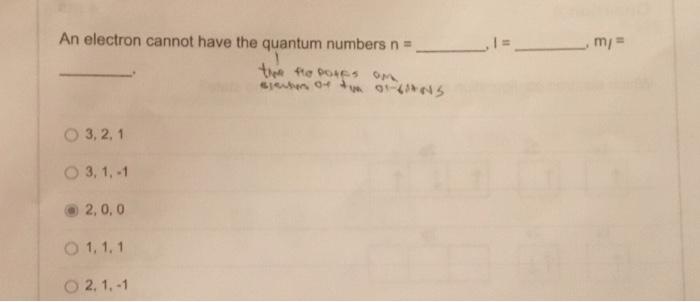 An electron cannot have the quantum numbers n = ________, l = ________, ml =
________.
the
of
3, 2, 1
3, 1, -1
2, 0, 0
1, 1, 1
2, 1, -1